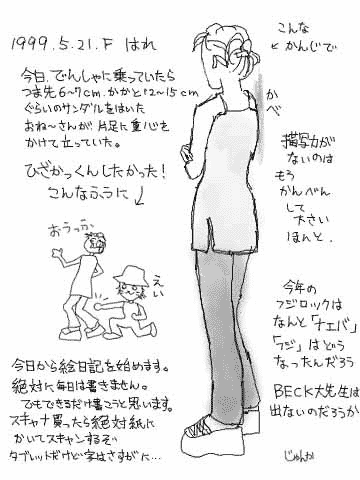 1999.5.21.F はれ
今日、でんしゃに乗っていたら
つま先6〜7cm.かかと12〜15cm
ぐらいのサンダルをはいた
おね〜さんが片足に重心を
かけて立っていた。
ひざかっくんしたかった!
こんなふうに
おうっふ
えい
今日から絵日記を始めます。
絶対に毎日は書きません。
でもできるだけ書こうと思います。
スキャナ買ったら絶対紙に
かいてスキャンするぞ
タブレットだけど字はさすがに…
こんな
かんじで
かべ
描写力が
ないのは
もう
かんべん
して
下さい
ほんと.
今年の
フジロックは
なんと「ナエバ」
「フジ」はどう
なったんだろう
BECK大先生は
出ないのだろうか
じゅんか